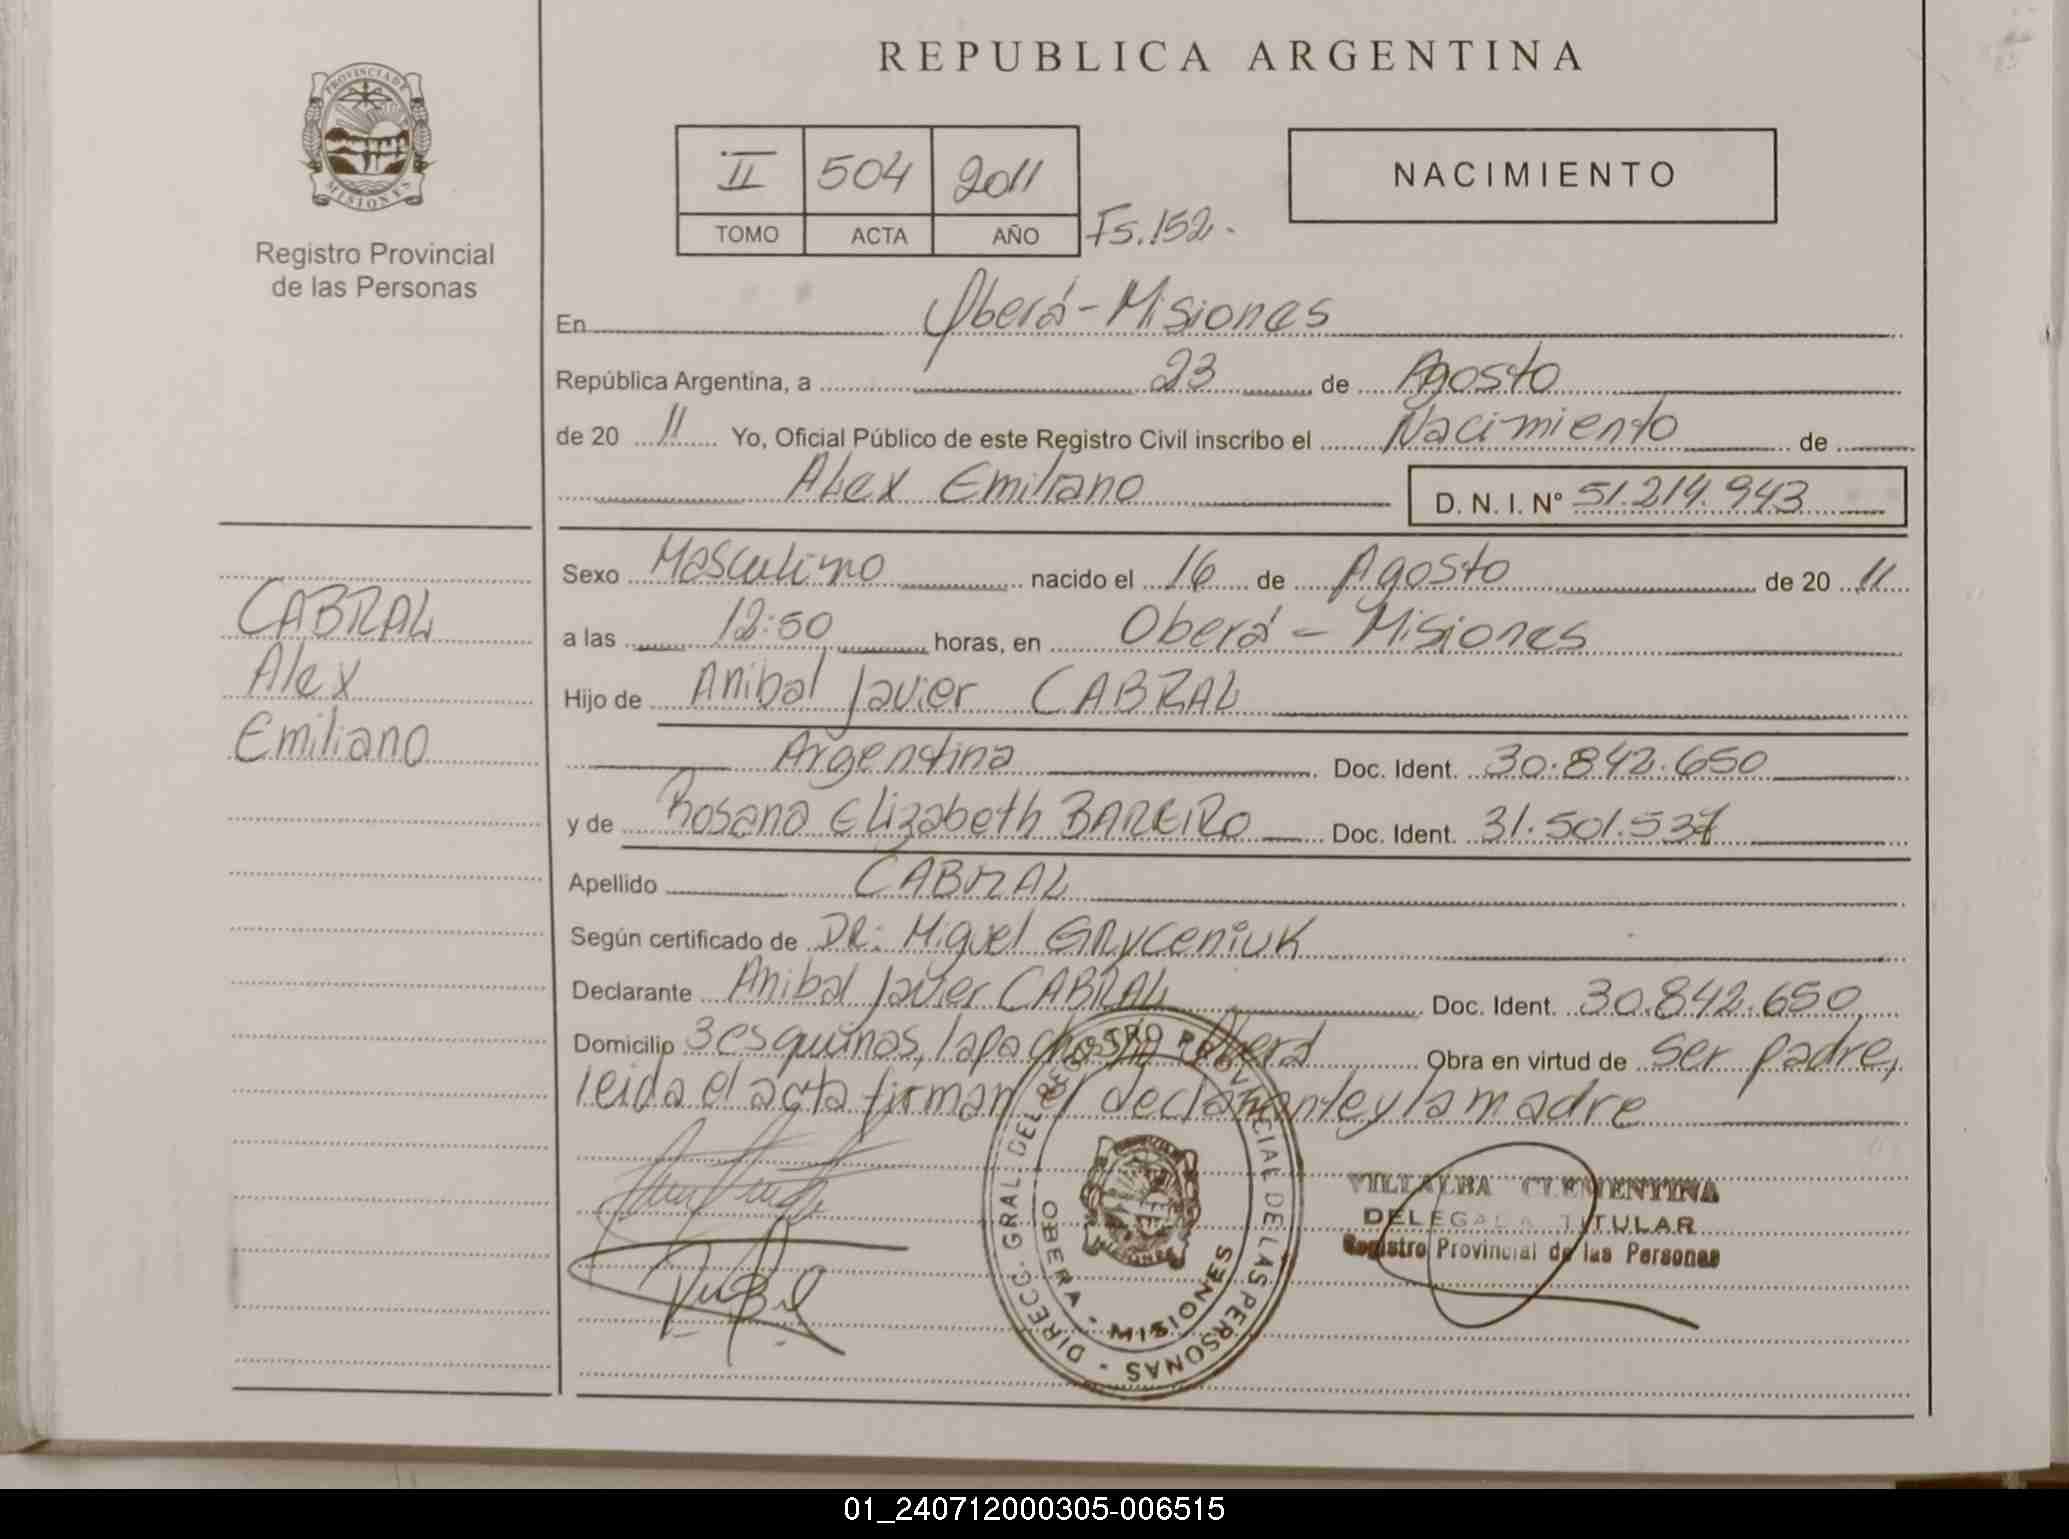 REPUBLICA ARGENTINA
PROVINCIA DE
MISIONES
Registro Provincial
de las Personas
II 504 2011
TOMO ACTA AÑO Fs. 152.-
NACIMIENTO
En Oberá - Misiones
República Argentina, a 23 de Agosto
de 20 11 Yo, Oficial Público de este Registro Civil inscribo el Nacimiento de
Alex Emiliano D. N. I. Nº 51.214.943
CABRAL
Alex
Emiliano
Sexo Masculino nacido el 16 de Agosto de 20 11
a las 12:50 horas, en Oberá - Misiones
Hijo de Anibal Javier CABRAL
Argentina Doc. Ident. 30.842.650
y de Rosana Elizabeth BAREIRO Doc. Ident. 31.501.537
Apellido CABRAL
Según certificado de DR: Miguel GRYCENIUK
Declarante Anibal Javier CABRAL Doc. Ident. 30.842.650
Domicilio 3 esquinas, lapachos Oberá Obra en virtud de ser padre,
leida el acta firman el declarante y la madre
DIRECC. GRAL. DEL REGISTRO PROVINCIAL DE LAS PERSONAS
OBERA - MISIONES
VILLALBA CLEMENTINA
DELEGADA TITULAR
Registro Provincial de las Personas
01_240712000305-006515